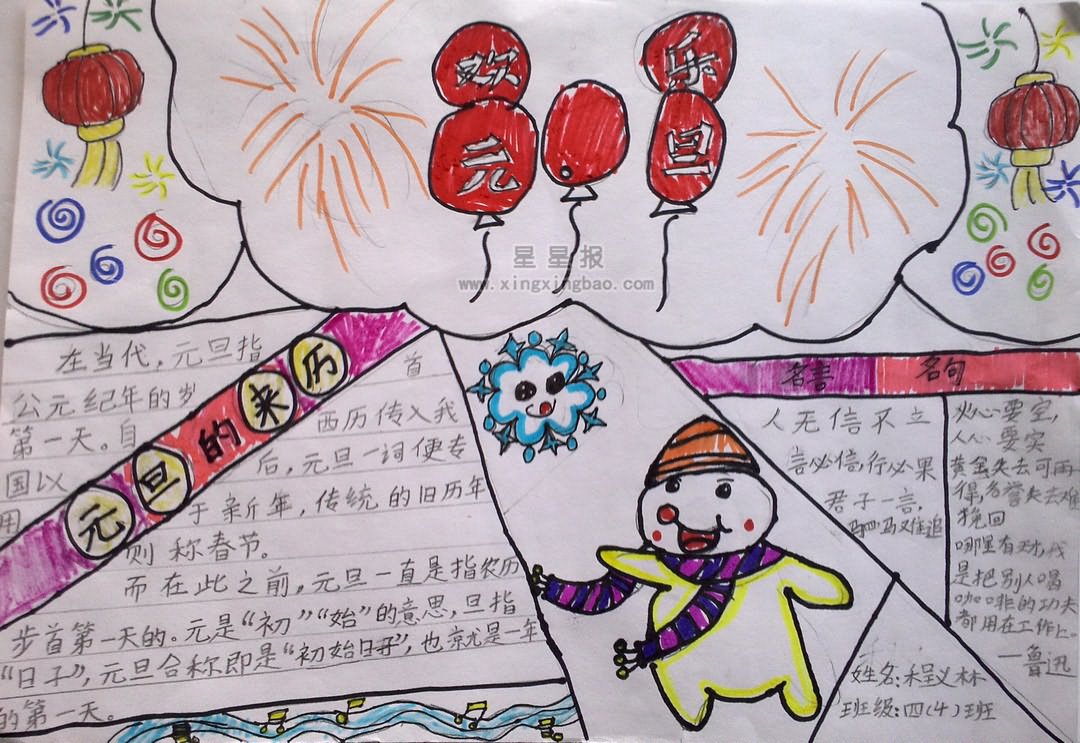 欢乐
元旦
星星报
www.xingxingbao.com
元旦的来历
在当代，元旦指
公元纪年的岁首
第一天。自西历传入我
国以后，元旦一词便专
用于新年，传统的旧历年
则称春节。
而在此之前，元旦一直是指农历
步首第一天的。元是“初”“始”的意思，旦指
“日子”，元旦合称即是“初始日子”，也就是一年
的第一天。
名言 名句
人无信不立
言必信，行必果
君子一言，
驷马难追
火心要空，
人心要实
黄金失去可再
得，名誉失去难
挽回
哪里有天才，我
是把别人喝
咖啡的功夫
都用在工作上。
—鲁迅
姓名：程义林
班级：四（4）班